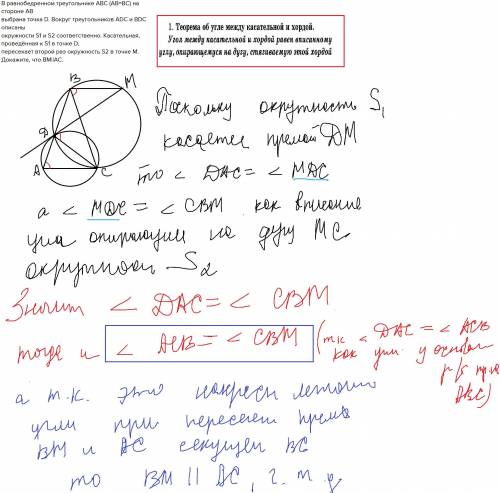 В равнобедренном треугольнике ABC (AB=BC) на
стороне AB
выбрана точка D. Вокруг треугольников ADC и BDC
описаны
окружности S1 и S2 соответственно. Касательная,
проведённая к S1 в точке D,
пересекает второй раз окружность S2 в точке M.
Докажите, что BM||AC.
1. Теорема об угле между касательной и хордой.
Угол между касательной и хордой равен вписанному
углу, опирающемуся на дугу, стягиваемую этой хордой
B
M
D
A
C
Поскольку окружность S1
касается прямой DM
то < DAC = < MDC
а < MDC = < CBM как вписание
угла опирающии на дугу MC
окружности S2
Значит < DAC = < CBM
тогда и < ACB = < CBM (т.к < DAC = < ACB
как угли у основан
р/б
ABC)
а т.к. это накрест лежащи
угли при пересечен прямо
BM и AC секущей BC
то BM || AC, ч.т.д